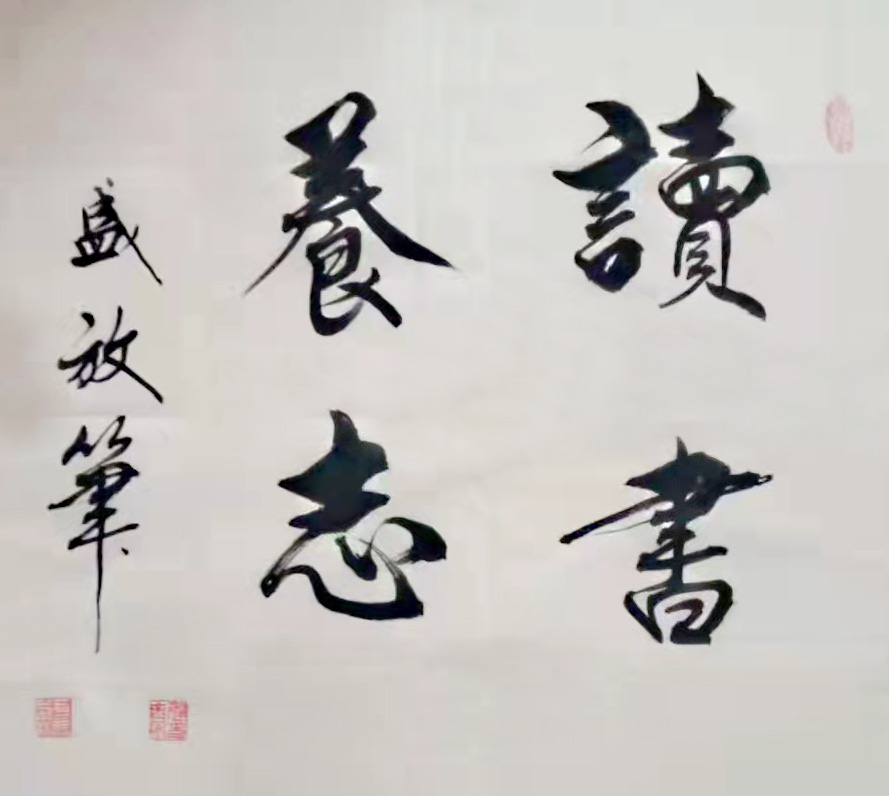 讀書
養志
盛放筆